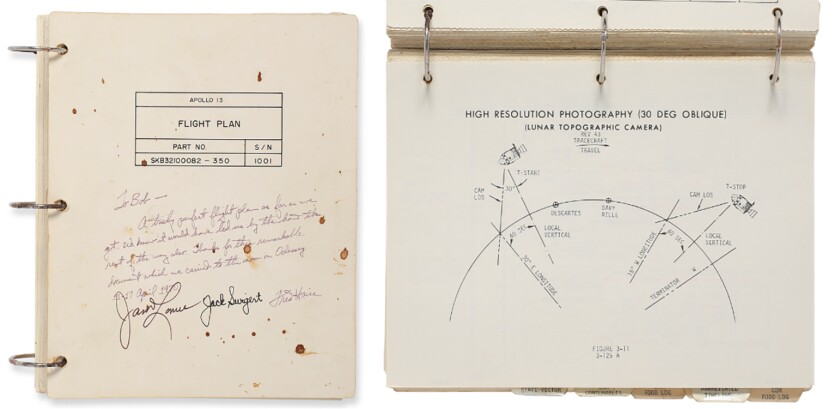 APOLLO 13
FLIGHT PLAN
PART NO. S/N
SKB32100082-350 1001
To Bob —
A truly perfect flight plan as far as we
got. We know it would have led us by the hand the
rest of the way also. Thanks for this remarkable
document which we carried to the moon on Odyssey
11-17 April 1970
Jack Swigert
Fred Haise
HIGH RESOLUTION PHOTOGRAPHY (30 DEG OBLIQUE)
(LUNAR TOPOGRAPHIC CAMERA)
REV 43
TRAVEL
T-START
30°
CAM
LOS
T-STOP
CAM LOS
DESCARTES
DAVY
RILLE
LOCAL
VERTICAL
40 DEG
LOCAL
VERTICAL
40 DEG
20° E LONGITUDE
TERMINATOR
FIGURE 3-11
3-125 A
FOOD LOG
FOOD LOG